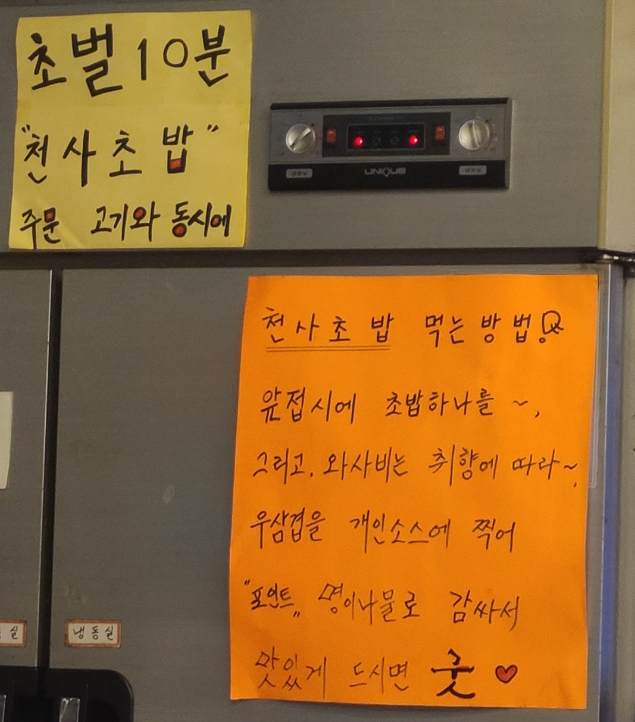 초벌 10분
"천사초밥"
주문 고기와 동시에
UNIQUE
천사초밥 먹는방법!
앞접시에 초밥하나를 ~,
그리고, 와사비는 취향에 따라~,
우삼겹을 개인소스에 찍어
"포인트" 명이나물로 감싸서
맛있게 드시면 굿 ♥
냉동실